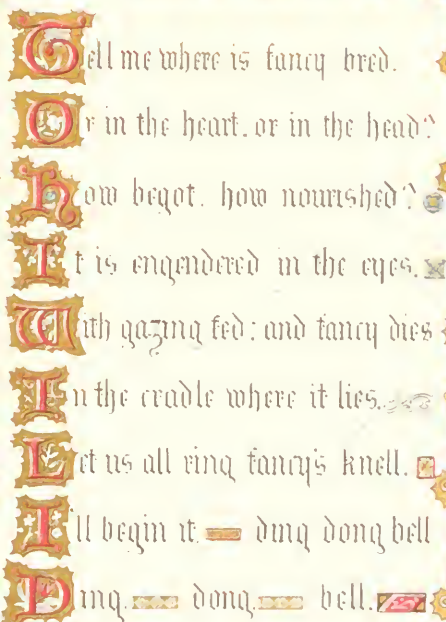 Tell me where is fancy bred.
Or in the heart. or in the head?
How begot. how nourished?
It is engendered in the eyes.
With gazing fed: and fancy dies
In the cradle where it lies.
Let us all ring fancy's knell.
I'll begin it ding dong bell
Ding. dong. bell.